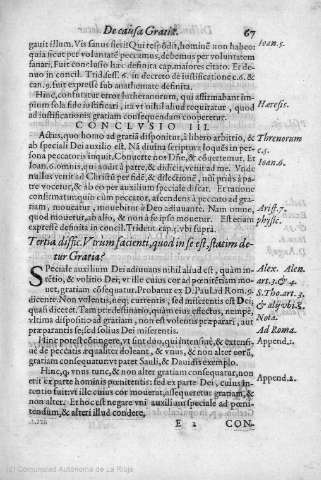 De causa Gratiæ. 67
gauit illum. Vis sanus fieri? Qui respōdit, hominē non habeo:
quia sicut per voluntatē peccamus, debemus per voluntatem
sanari. Fuit conclusio hæc definita cap. maiores citato. Et de-
nuo in concil. Trid. sess. 6. in decreto de iustificatione c. 6. &
can. 9. fuit expressè sub anathemate definita.
Hinc, confutatur error lutheranorum, qui affirmabant im-
pium sola fide iustificari, ita vt nihil aliud requiratur, quod
ad iustificationis gratiam consequendam cooperetur.
CONCLVSIO III.
Actus, quo homo ad gratiā disponitur, à libero arbitrio, &
ab speciali Dei auxilio est. Nā diuina scriptura loquēs in per-
sona peccatoris inquit. Conuerte nos Dñe, & cōuertemur. Et
Ioan. 6. omnis, qui audit à patre, & didicit, venit ad me. Sed
nullus venit ad Christū per fidē, & dilectionē, nisi priùs à pa-
tre vocetur, & ab eo per auxilium speciale discat. Et ratione
confirmatur, quia cùm peccator, ascendens à peccato ad gra-
tiam, moueatur, mouebitur à Deo adiuuante. Nam omne,
quod mouetur, ab alio, & non à se ipso mouetur. Est etiam
expressè definita in concil. Trident. cap. 5. vbi suprà.
Tertia diffic. Vtrum facienti, quod in se est, statim de-
tur Gratia?
Speciale auxilium Dei adiuuans nihil aliud est, quàm in-
sectio, & volitio Dei, vt ille cuius cor ad pœnitētiam mo-
uet, gratiam cōsequatur. Probatur ex D. Paul. ad Rom. 9.
dicente. Non volentis, neq; currentis, sed miserentis est Dei;
quasi dicetet. Tam per destinatio, quàm eius effectus, nempè
vltima dispositio ad gratiam, non est volentis præparari, aut
præparantis se, sed solius Dei miserentis.
Hinc potest cōtingere, vt sint duo, qui intensiuè, & extensi-
uè de peccatis æqualiter doleant, & vnus, & non alter verā,
gratiam consequatur. vt patet Sauli, & Dauidis exemplo.
Hinc, q; vnus tunc, & non alter gratiam consequatur, non
erit ex parte hominis pœnitentis: sed ex parte Dei, cuius in-
tentio fuit vt illi cuius cor mouerat, assequeretur gratiam, &
non alter. Et hoc est negare vni auxilium speciale ad pœni-
tendum, & alteri illud condere,
E 2 CON-
Ioan. 5.
Hæresis.
Threnorum
c. 5.
Ioan. 6.
Arist. 7.
physic.
Alex. Alen.
art. 3. & 4.
S. Tho. art. 3.
& alij vbi s.
Nota.
Ad Roma.
Append. 1.
Append. 2.
(c) Comunidad Autónoma de La Rioja